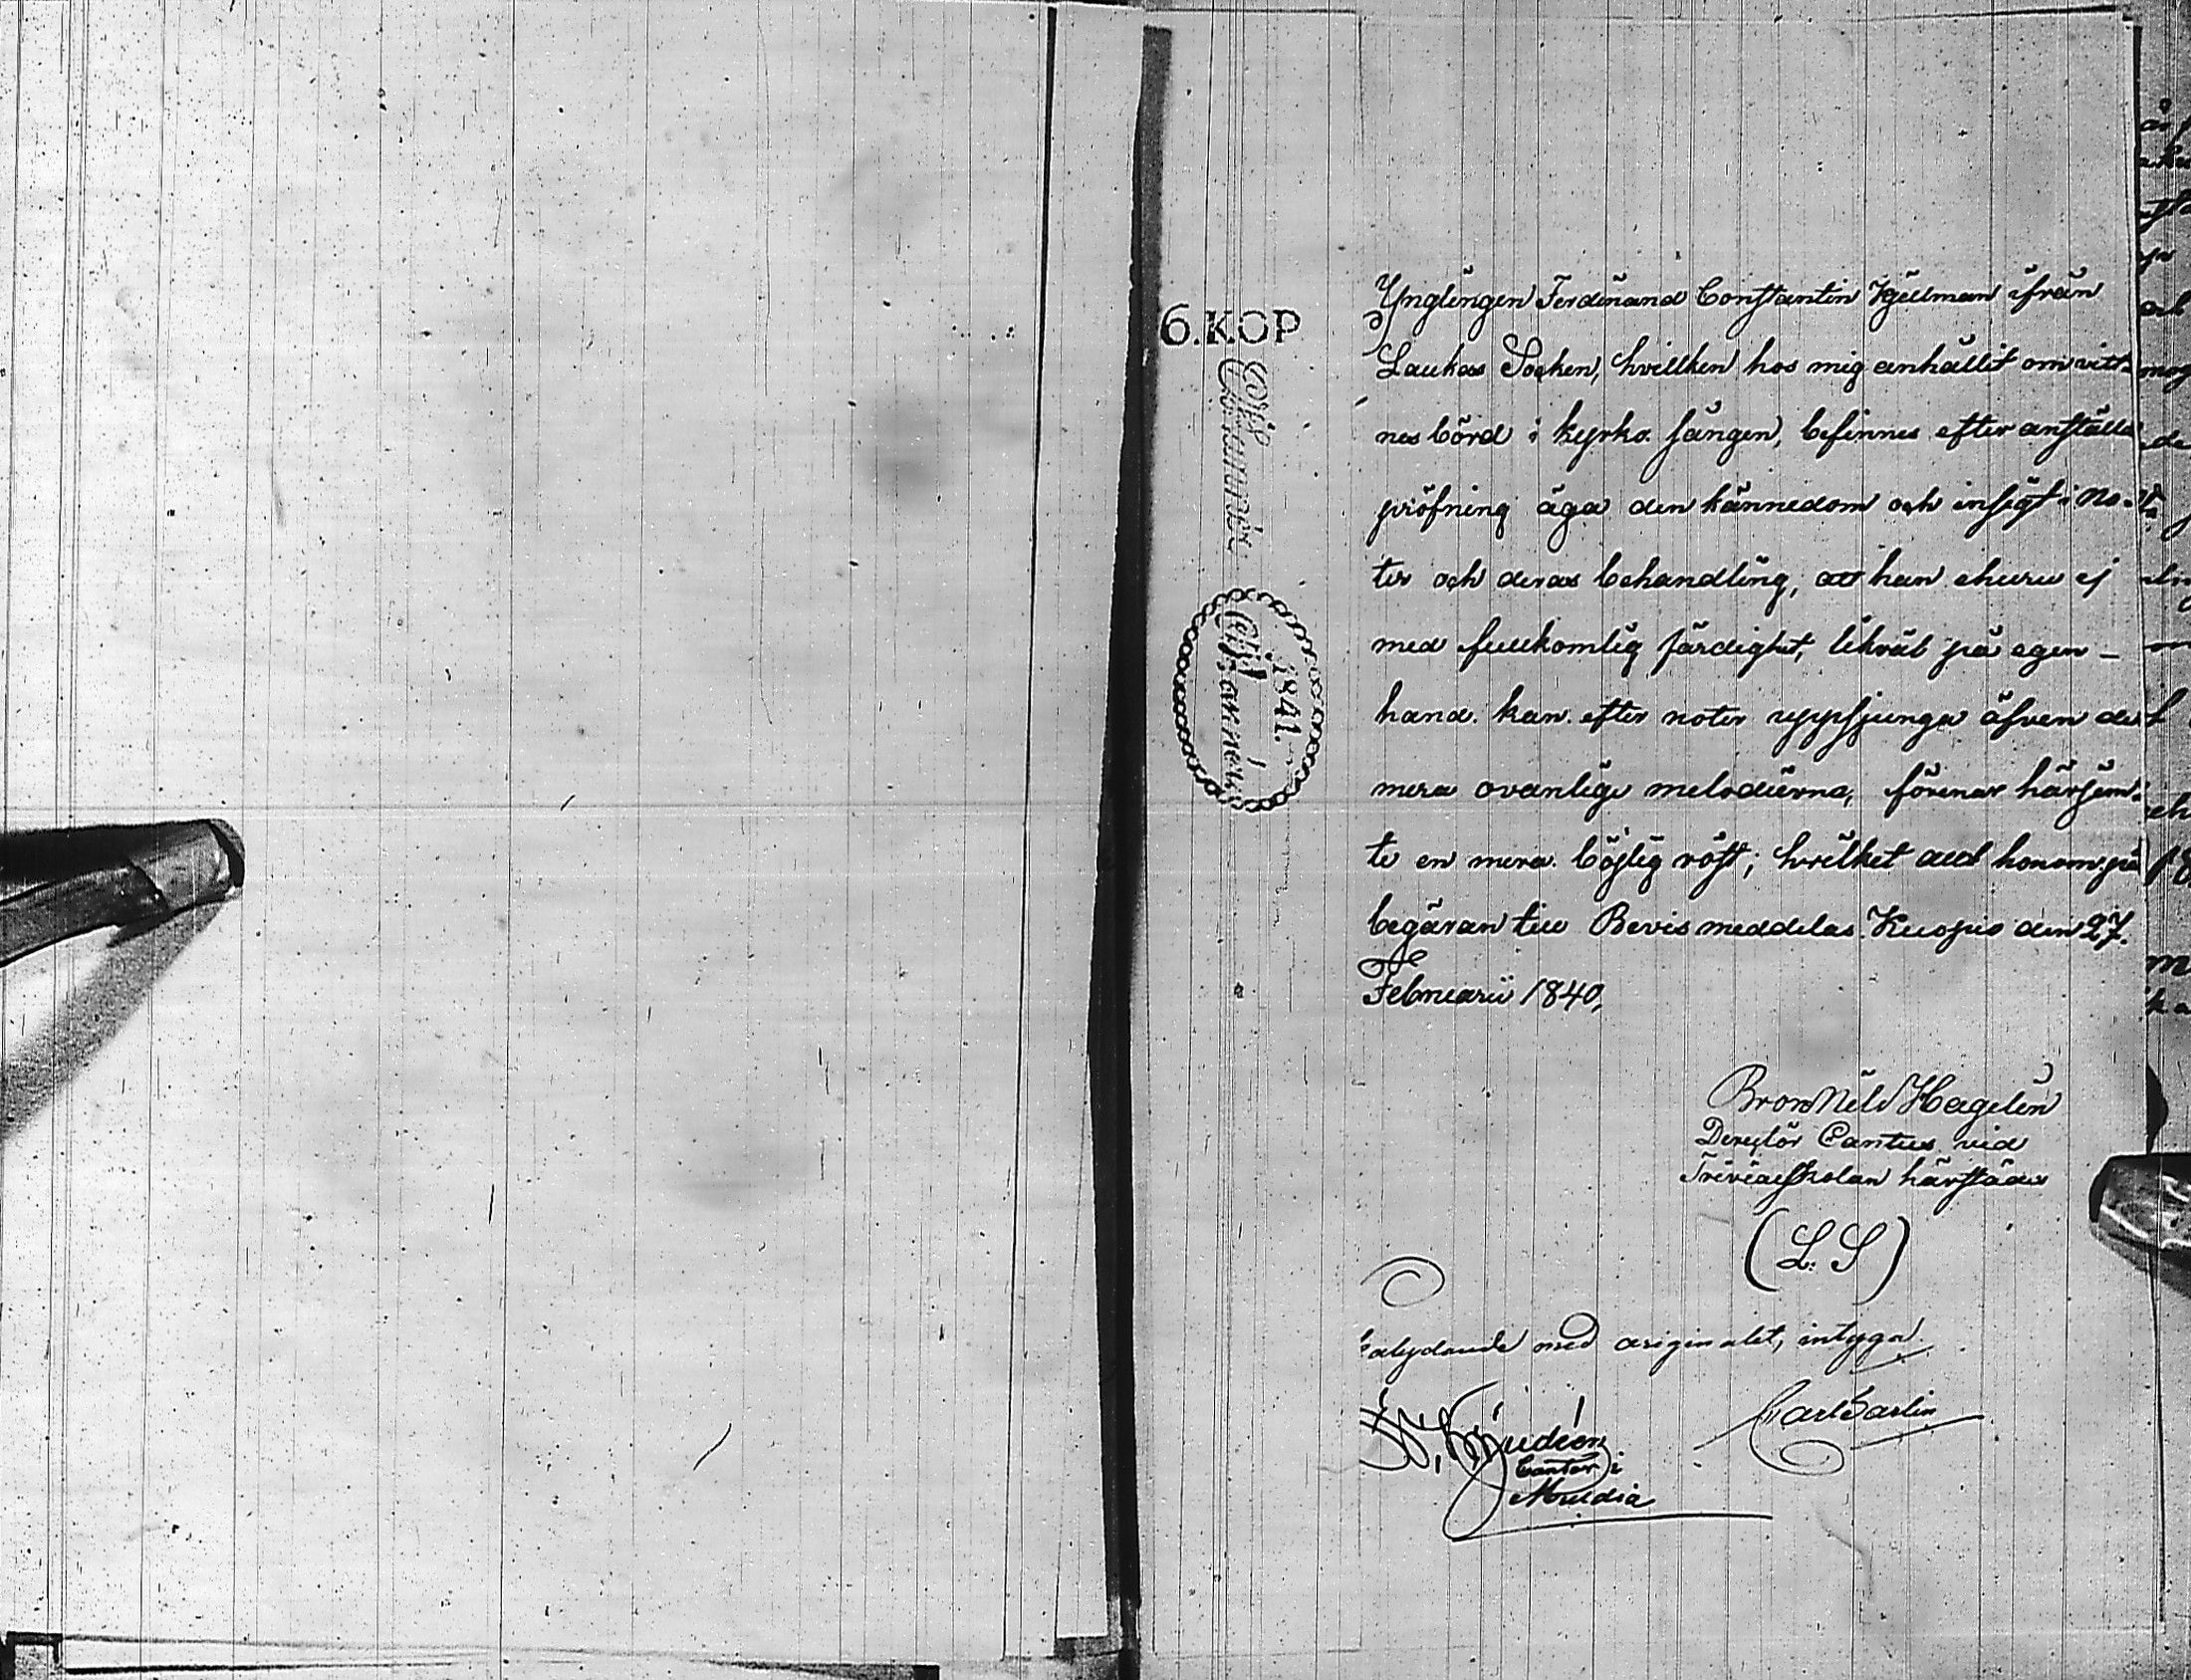 6.KOP
1841.
Ynglingen Ferdinand Constantin Kjellman ifrån
Laukas Socken, hvillken hos mig anhållit om vitt-
nes börd i kyrko sången, befinnes efter anställd
pröfning äga den kännedom och insigt i no-
ter och deras behandling, att han ehuru ej
med fullkomlig färdighet, likväl på egen-
hand kan efter noter uppsjunga äfven de
mera ovanliga melodierna, förenar härjem-
te en mera böjlig röst; hvilket allt honom på
begäran till Bevis meddelas. Kuopio den 27.
Februarii 1840,
Nils Hagelin
Cantus vid
Trivialskolan härstädes
(L. S)
lydande med originalet, intyga
Carl Sarlin
Cantor i